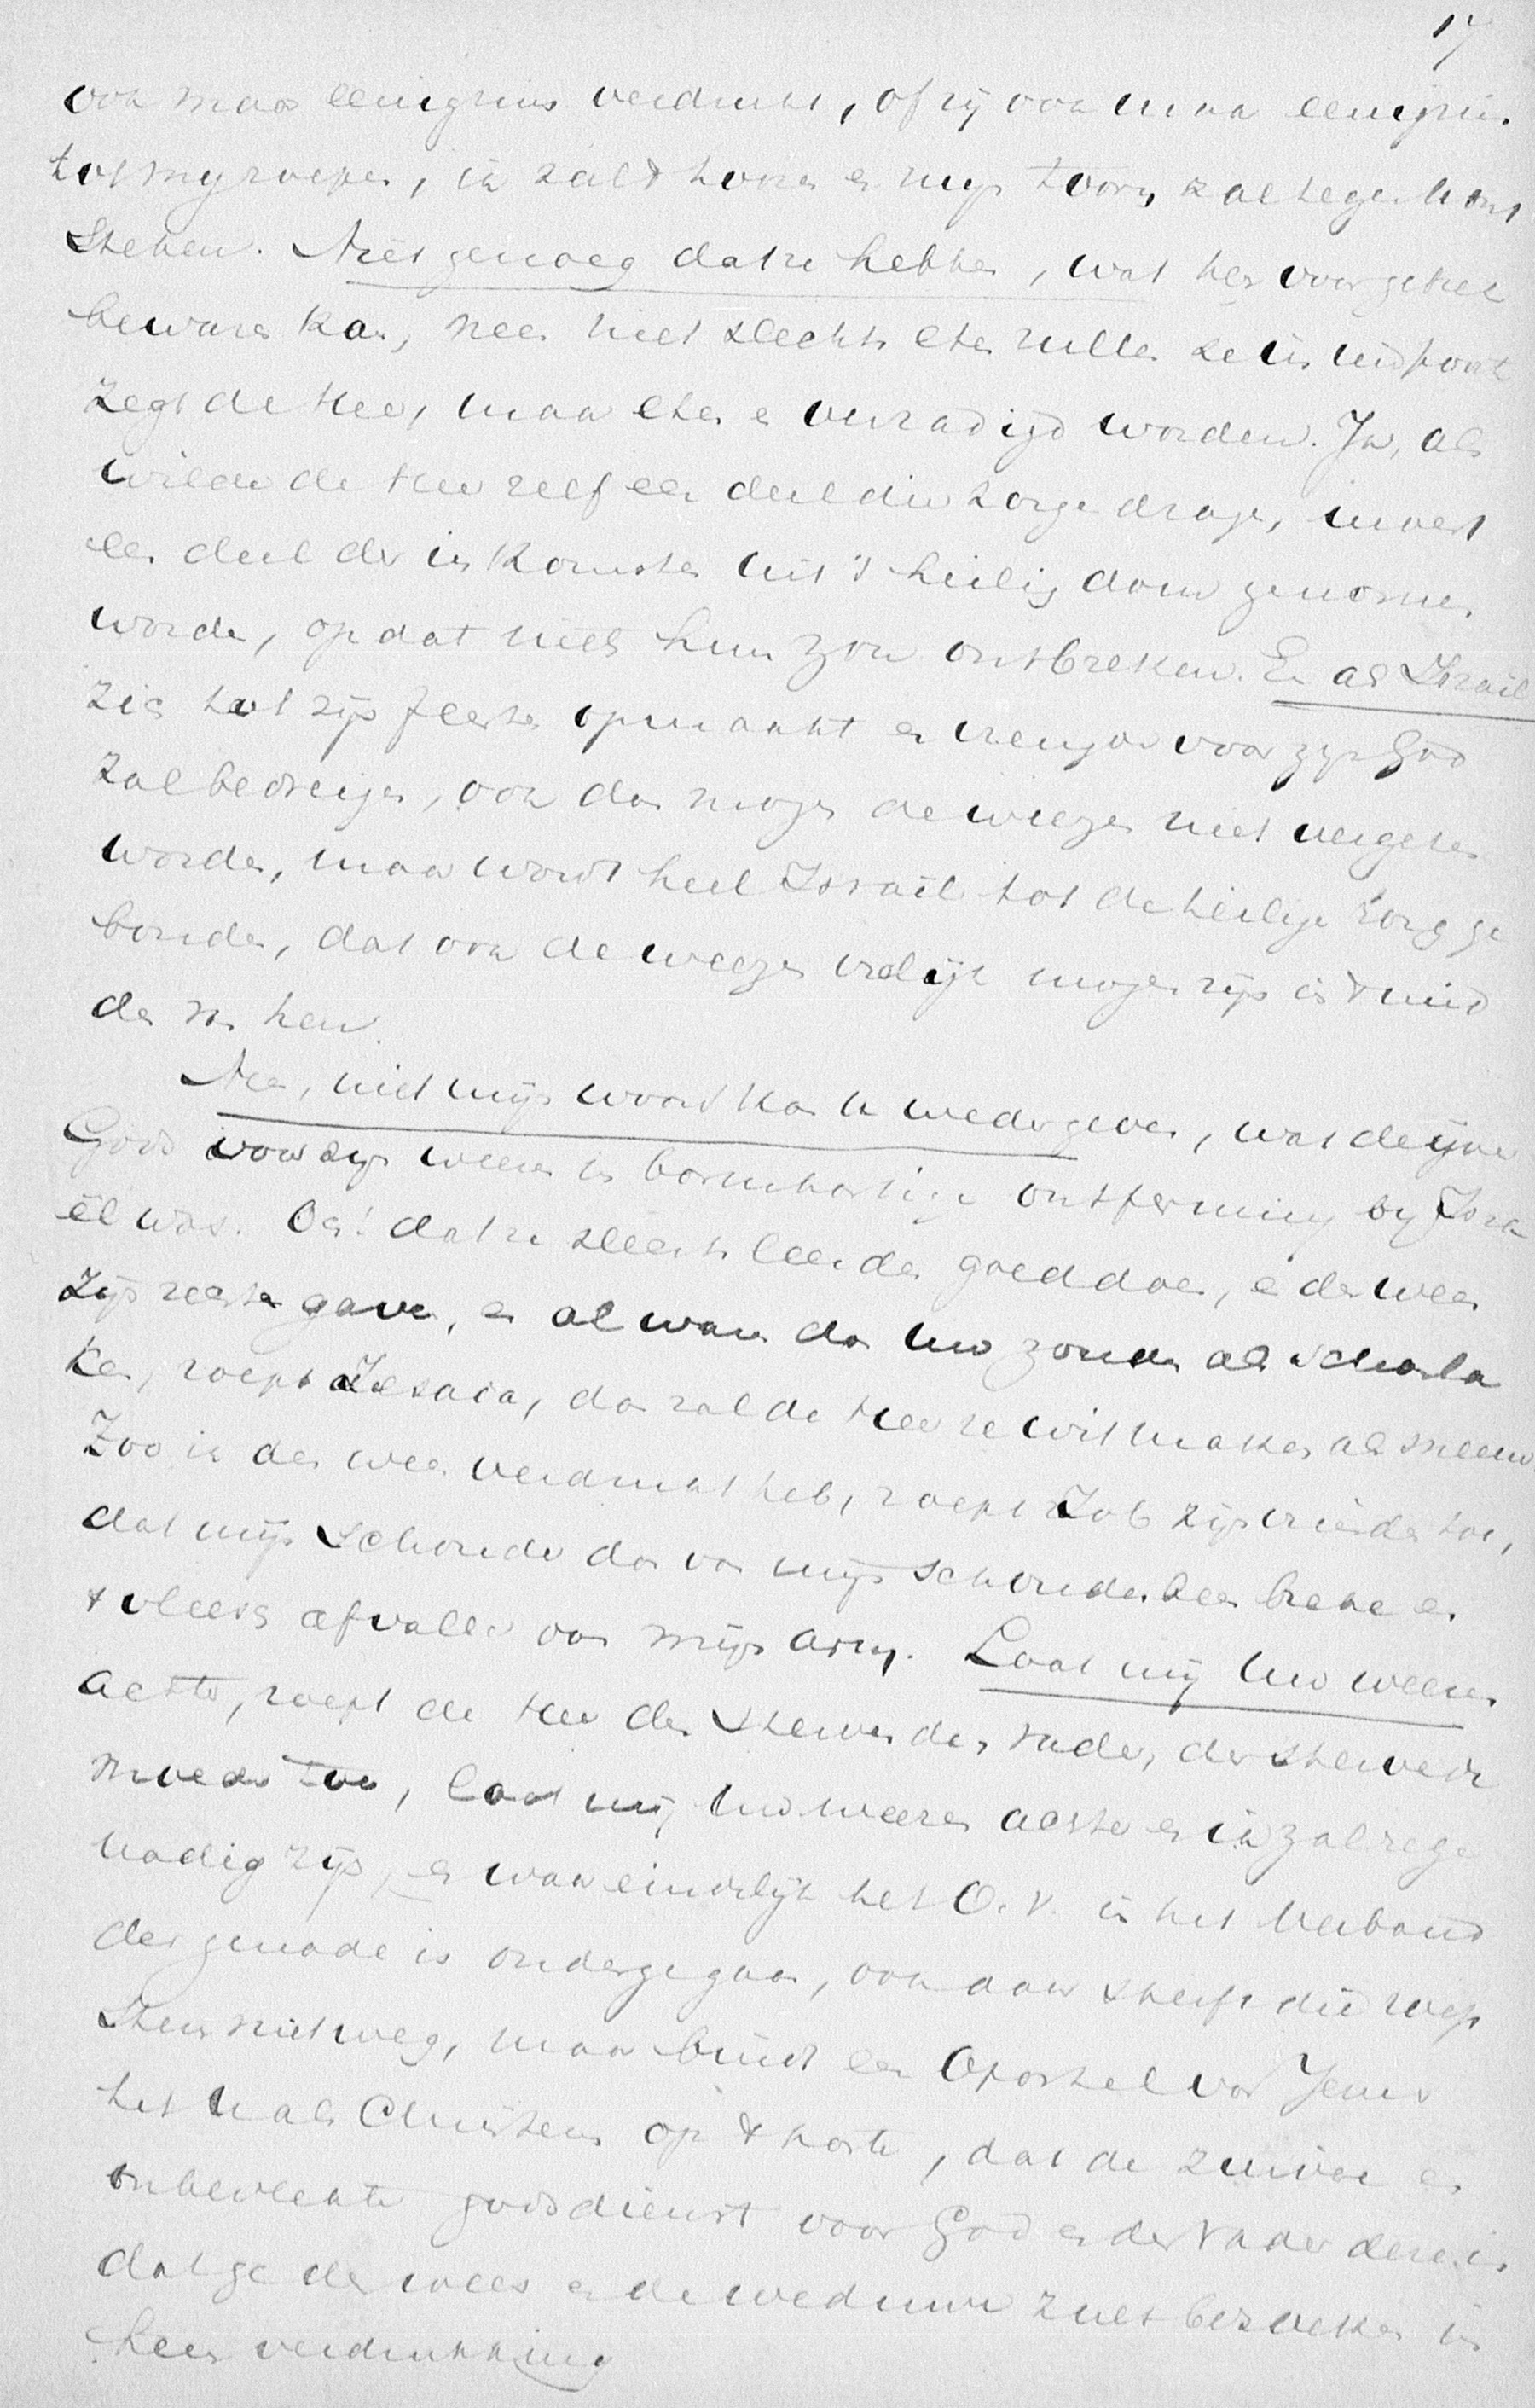 17
ook maar eenigzins verdrukt, of zij ook maar eenigzins
tot mij roepen, ik zal 't hooren en mijn toorn zal tegen u ont
steken. Niet genoeg dat ze hebben, wat hen voor gebrek
bewaren kan, neen niet slechts eten zullen ze in uw poort
zegt de Heer, maar eten en verzadigd worden. Ja, als
wilde de Heer zelf een deel dier zorgen dragen, moest
een deel der inkomsten uit 't heiligdom genomen
worden, opdat niets hun zou ontbreken. En als Israël
zich tot zijn feesten opmaakt en vreugde voor zijn God
zal bedrijven, ook dan mogen de weezen niet vergeten
worden, maar wordt heel Israël tot de heilige zorg ge
bonden, dat ook de weezen vrolijk mogen zijn in 't mid
den van hen.
Neen, niet mijn woord kan u wedergeven, wat de ijver
Gods voor zijn weezen in barmhartige ontferming bij Isra
ël was. Och! dat ze slechts leerden goeddoen, en den wees
zijn rechten gaven, en al waren dan uw zonden als scharla
ken, roept Jesaia, dan zal de Heer ze wit maken als sneeuw
Zoo ik den wees verdrukt heb, roept Job zijn vrienden toe,
dat mijn schouder dan van mijn schouderbeen breke en
't vleesch afvalle van mijn arm. Laat mij uw weezen
achter, roept de Heer den stervenden vader, der stervende
moeder toe, laat mij uw weezen achter en ik zal ze ge
nadig zijn, en waar eindelijk het O. V. in het Verbond
der genade is ondergegaan, ook daar sterft die roep
stem niet weg, maar bindt een Apostel van Jezus
het u als Christenen op 't harte, dat de zuivere en
onbevlekte godsdienst voor God en den Vader deze is
dat ge de wees en de weduwe zult bezoeken in
hun verdrukking